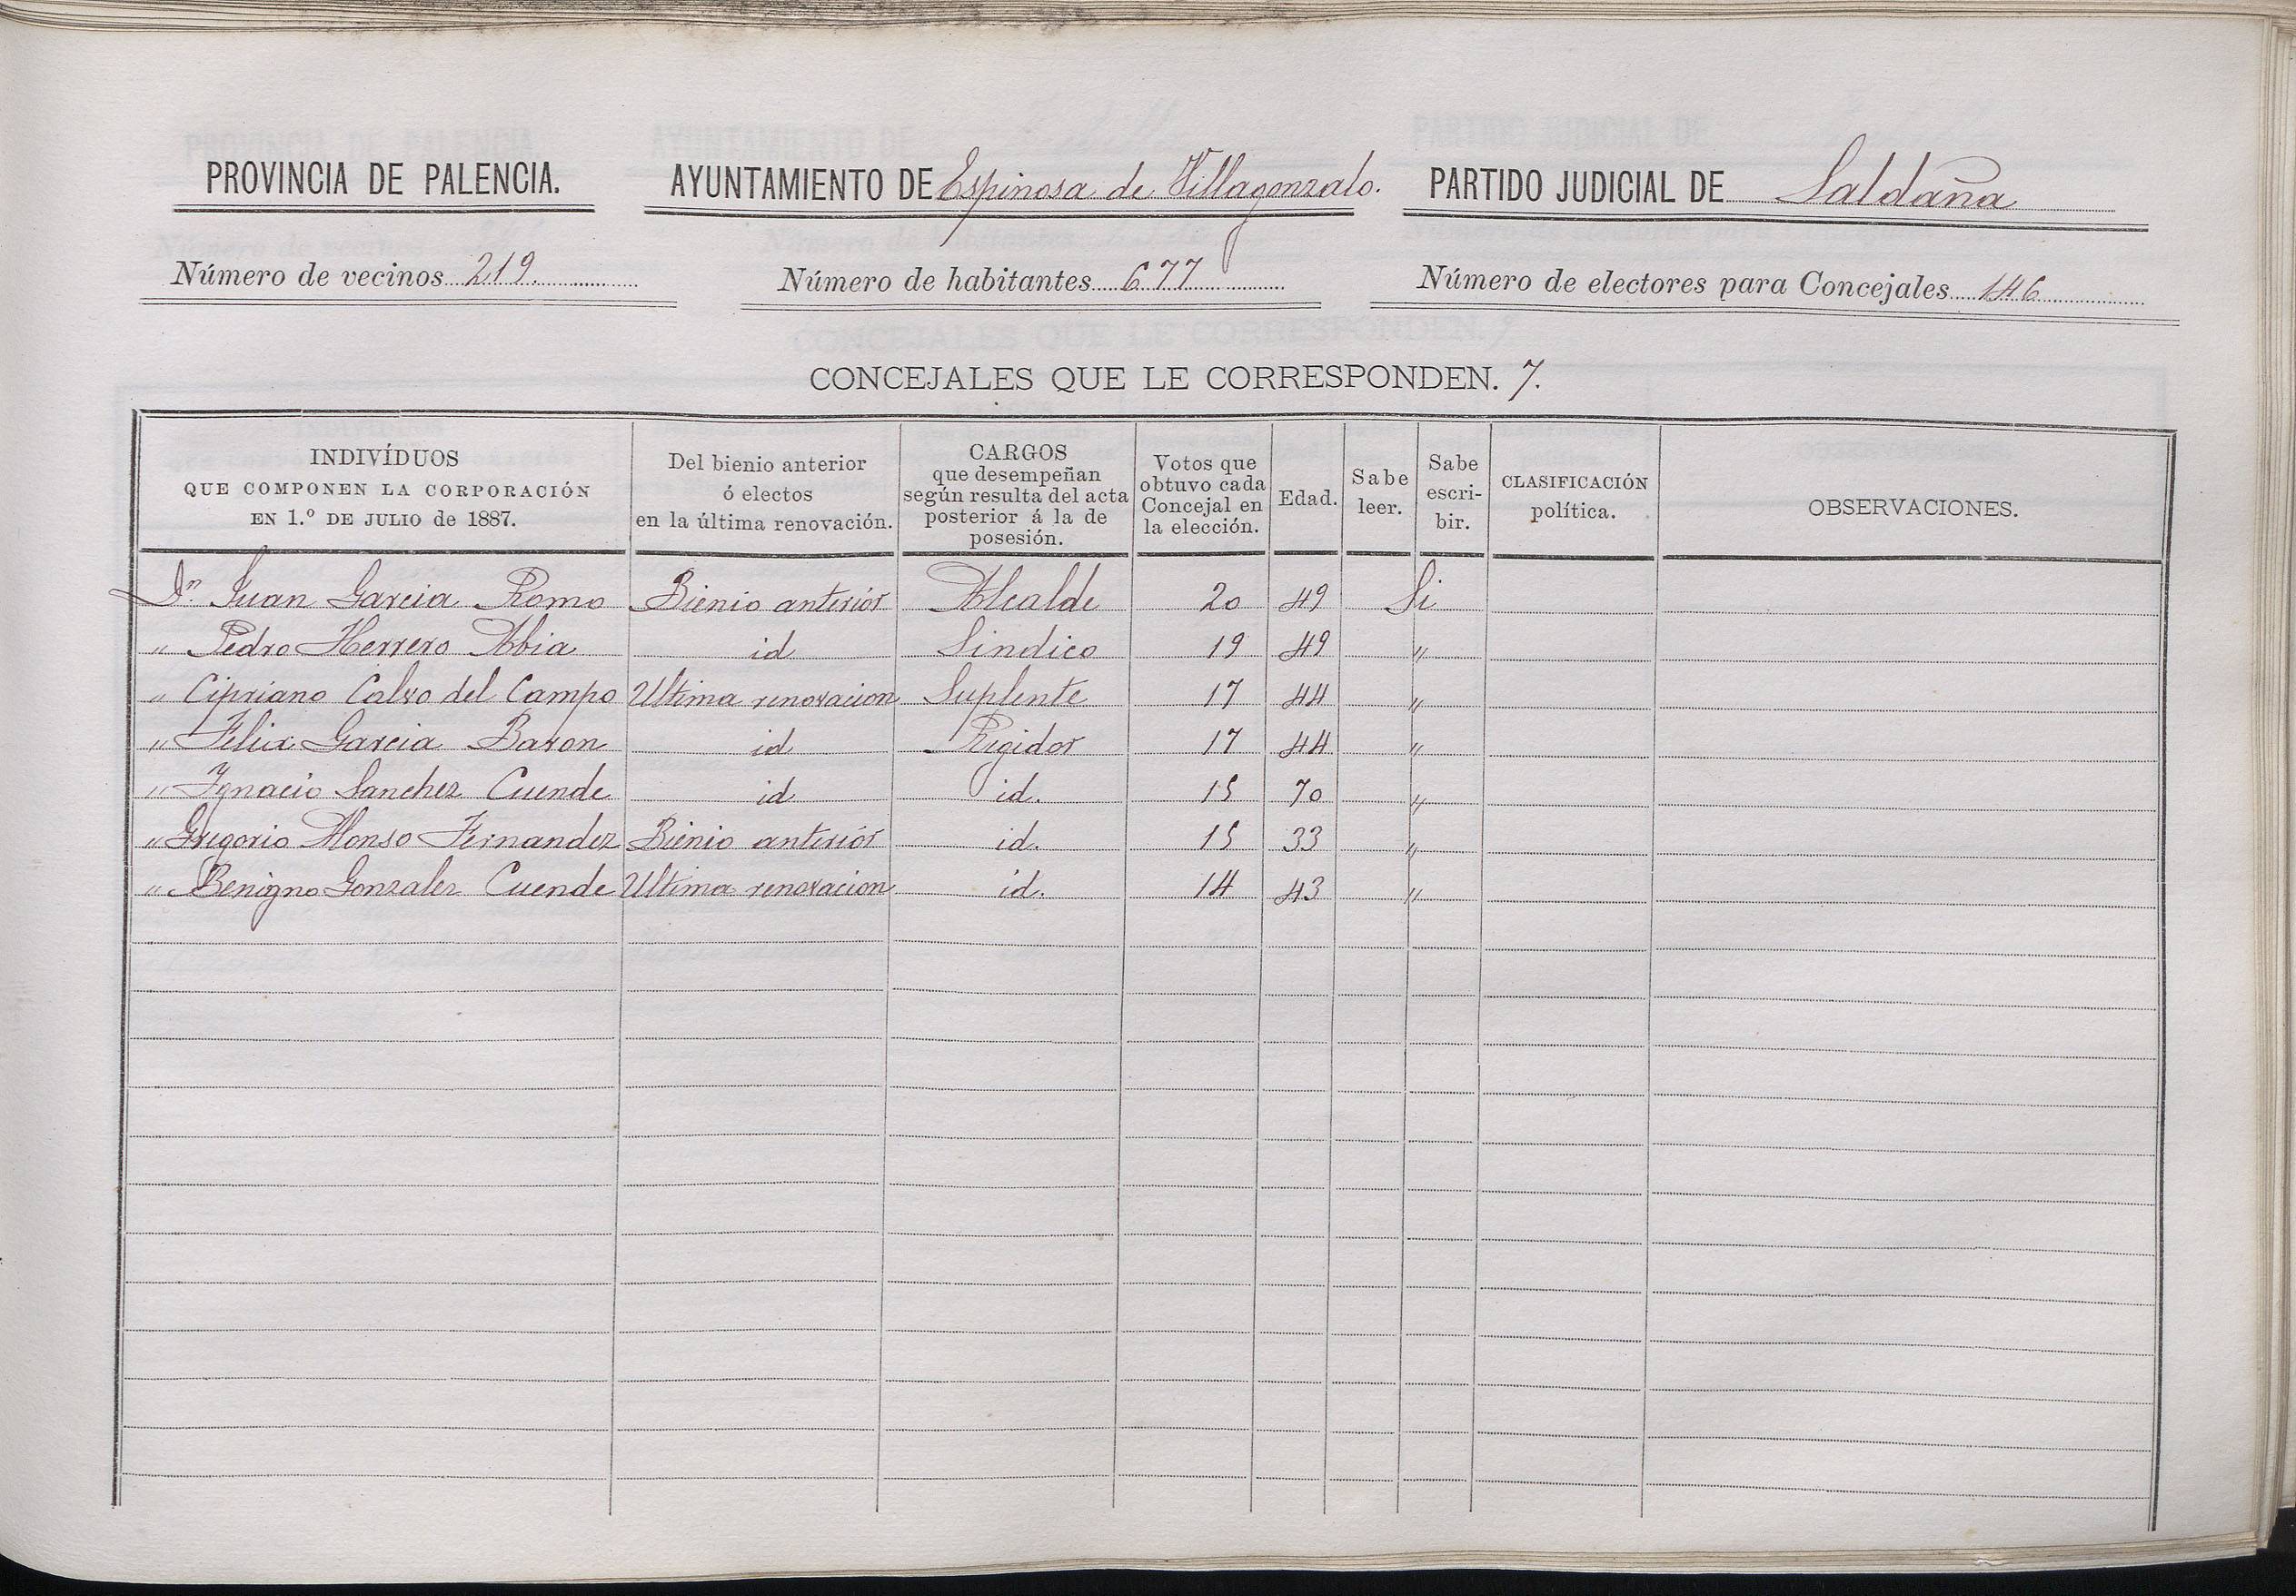 PROVINCIA DE PALENCIA. AYUNTAMIENTO DE Espinosa de Villagonzalo. PARTIDO JUDICIAL DE Saldaña
Número de vecinos 219. Número de habitantes 677 Número de electores para Concejales 146
CONCEJALES QUE LE CORRESPONDEN. 7.
INDIVÍDUOS
QUE COMPONEN LA CORPORACIÓN
EN 1.º DE JULIO de 1887.
Del bienio anterior
ó electos
en la última renovación.
CARGOS
que desempeñan
según resulta del acta
posterior á la de
posesión.
Votos que
obtuvo cada
Concejal en
la elección.
Edad.
Sabe
leer.
Sabe
escri-
bir.
CLASIFICACIÓN
política.
OBSERVACIONES.
Dn. Juan Garcia Romo Bienio anteriór Alcalde 20 49 Si
" Pedro Herrero Abia id Sindico 19 49 "
" Cipriano Calvo del Campo Ultima renovacion Suplente 17 44 "
" Felix Garcia Baron id Regidor 17 44 "
" Ygnacio Sanchez Cuende id id. 15 70 "
" Gregorio Alonso Fernandez Bienio anteriór id. 15 33 "
" Benigno Gonzalez Cuende Ultima renovacion id. 14 43 "